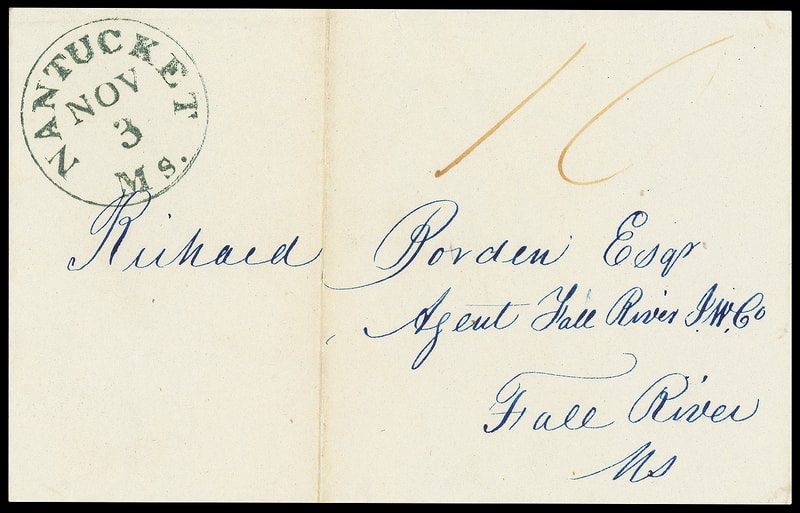 NANTUCKET Ms.
NOV
3
10
Richard Borden Esqr
Agent Fall River I.W. Co
Fall River
Ms